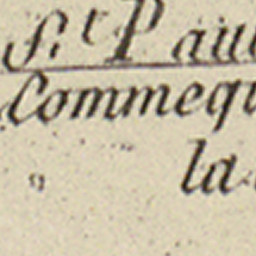 S.t Paul
Commequ
" la